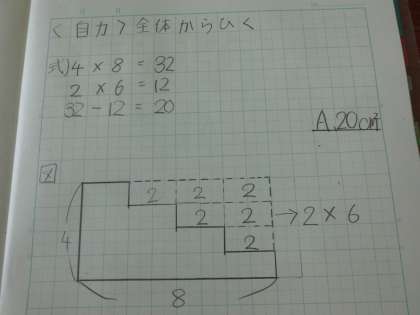 ＜自力＞全体からひく
式)4×8=32
2×6=12
32-12=20
A.20cm²
図
2 2 2
2 2 →2×6
2
4
8